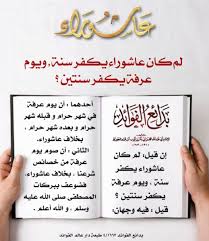 عاشوراء
لم كان عاشوراء يكفر سنة، ويوم
عرفة يكفر سنتين ؟
بدائع الفوائد
إن قيل: لم كان
عاشوراء يكفر
سنة ، ويوم عرفة
يكفر سنتين ؟
قيل : فيه وجهان:
أحدهما ، أن يوم عرفة
في شهر حرام و قبله شهر
حرام و بعده شهر حرام ،
بخلاف عاشوراء.
الثاني : أن صوم يوم
عرفة من خصائص
شرعنا ، بخلاف عاشوراء،
فضوعف ببركات
المصطفى صلى الله عليه
وسلم . و الله أعلم .
بدائع الفوائد
طبعة دار عالم الفوائد